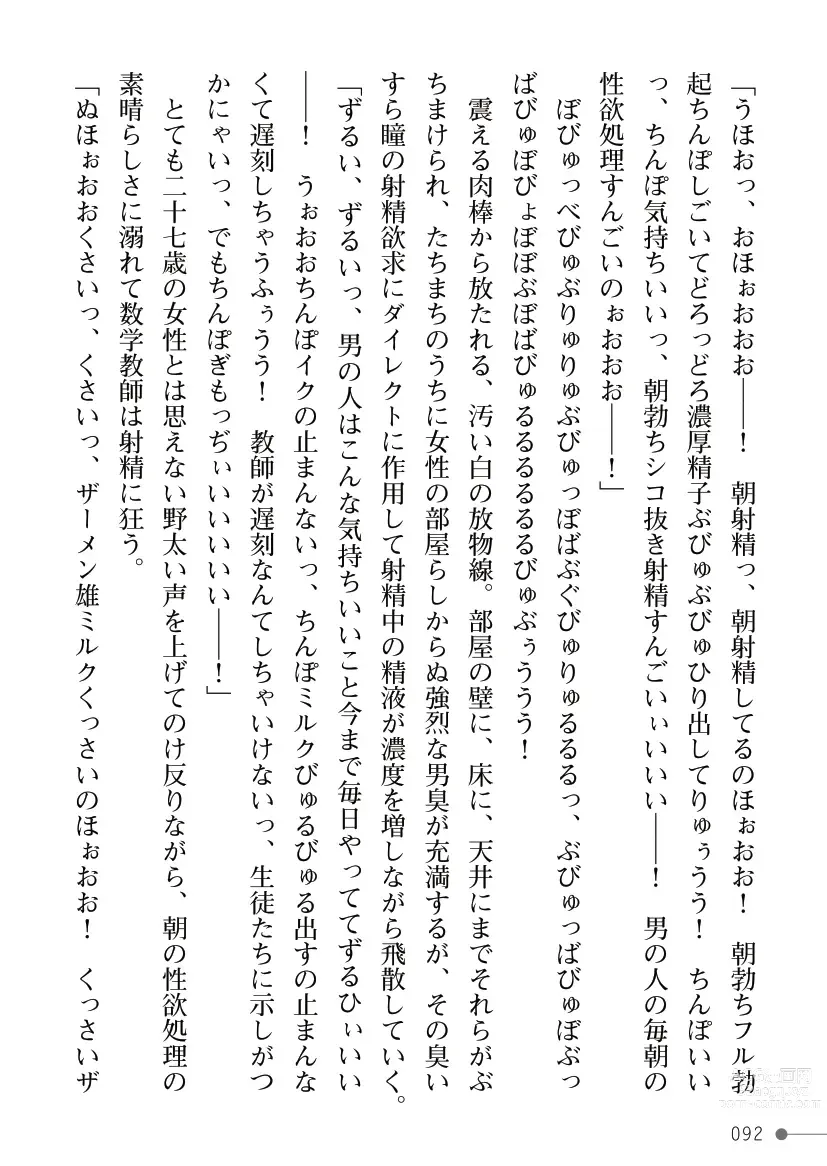 「うほおっ、おほぉおおお――！　朝射精っ、朝射精してるのほぉおお！　朝勃ちフル勃
起ちんぽしごいてどろっどろ濃厚精子ぶびゅぶびゅひり出してりゅぅうう！　ちんぽいい
っ、ちんぽ気持ちいいっ、朝勃ちシコ抜き射精すんごいぃいいい――！　男の人の毎朝の
性欲処理すんごいのぉおおお――！」
　ぼびゅっべびゅぶりゅりゅぶびゅっぼばぶぐびゅりゅるるるっ、ぶびゅっばびゅぼぶっ
ばびゅぼびょぼぼぶぼばびゅるるるるるるびゅぶぅううう！
　震える肉棒から放たれる、汚い白の放物線。部屋の壁に、床に、天井にまでそれらがぶ
ちまけられ、たちまちのうちに女性の部屋らしからぬ強烈な男臭が充満するが、その臭い
すら瞳の射精欲求にダイレクトに作用して射精中の精液が濃度を増しながら飛散していく。
「ずるい、ずるいっ、男の人はこんな気持ちいいこと今まで毎日やっててずるひぃいい
――！　うぉおおちんぽイクの止まんないっ、ちんぽミルクびゅるびゅる出すの止まんな
くて遅刻しちゃうふぅうう！　教師が遅刻なんてしちゃいけないっ、生徒たちに示しがつ
かにゃいっ、でもちんぽぎもっぢぃいいいいい――！」
　とても二十七歳の女性とは思えない野太い声を上げてのけ反りながら、朝の性欲処理の
素晴らしさに溺れて数学教師は射精に狂う。
「ぬほぉおおくさいっ、くさいっ、ザーメン雄ミルクくっさいのほぉおお！　くっさいザ
092